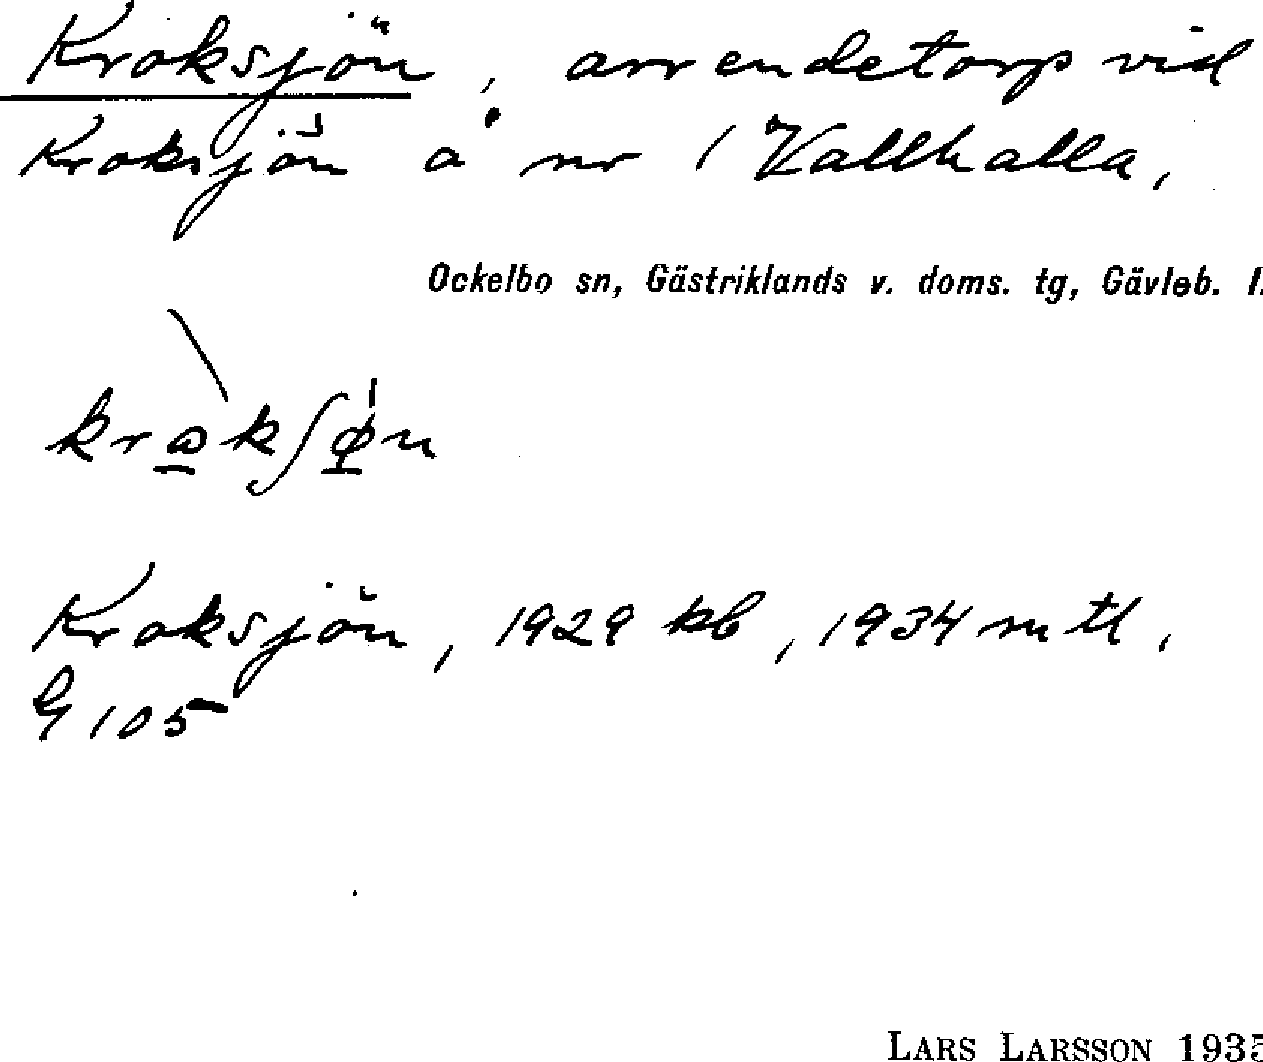 Kroksjön, arrendetorp vid
Kroksjön å nr 1 Vallhalla,
Ockelbo sn, Gästriklands v. doms. tg, Gävleb. l.
Kroksjön, 1929 kb, 1934 mtl,
G 105
LARS LARSSON 1935